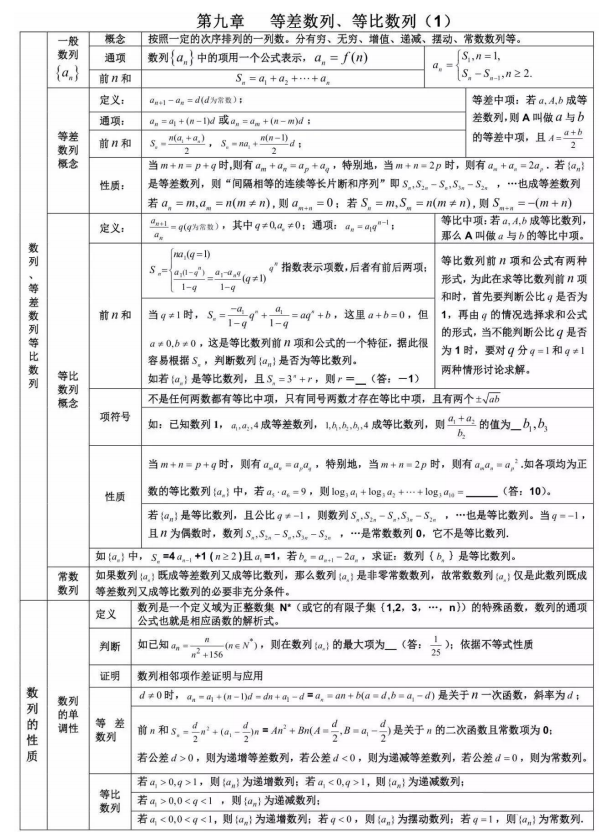 第九章 等差数列、等比数列（1）
数列、等差数列等比数列
一般数列 {aₙ}
概念 按照一定的次序排列的一列数。分有穷、无穷、增值、递减、摆动、常数数列等。
通项 数列{aₙ}中的项用一个公式表示，aₙ = f(n)
aₙ = { S₁, n = 1, Sₙ − Sₙ₋₁, n ≥ 2.
前 n 和 Sₙ = a₁ + a₂ + ⋯ + aₙ
等差数列概念
定义： aₙ₊₁ − aₙ = d(d为常数)；
通项： aₙ = a₁ + (n−1)d 或 aₙ = aₘ + (n−m)d；
前 n 和 Sₙ = n(a₁ + aₙ)/2，Sₙ = na₁ + n(n−1)/2 d；
等差中项：若 a, A, b 成等
差数列，则 A 叫做 a 与 b
的等差中项，且 A = (a+b)/2
性质：
当 m + n = p + q 时,则有 aₘ + aₙ = aₚ + a_q，特别地，当 m + n = 2p 时，则有 aₘ + aₙ = 2aₚ．若{aₙ}
是等差数列，则“间隔相等的连续等长片断和序列”即 Sₙ, S₂ₙ − Sₙ, S₃ₙ − S₂ₙ ，…也成等差数列
若 aₙ = m, aₘ = n(m ≠ n)，则 aₘ₊ₙ = 0；若 Sₙ = m, Sₘ = n(m ≠ n)，则 Sₘ₊ₙ = −(m + n)
等比数列概念
定义： aₙ₊₁/aₙ = q(q为常数)，其中 q ≠ 0, aₙ ≠ 0；通项：aₙ = a₁qⁿ⁻¹；
等比中项：若 a, A, b 成等比数列，
那么 A 叫做 a 与 b 的等比中项。
前 n 和
Sₙ = { na₁(q = 1) a₁(1−qⁿ)/(1−q) = (a₁−aₙq)/(1−q) (q ≠ 1) qⁿ 指数表示项数，后者有前后两项；
当 q ≠ 1 时，Sₙ = −a₁/(1−q) qⁿ + a₁/(1−q) = aqⁿ + b，这里 a + b = 0，但
a ≠ 0, b ≠ 0，这是等比数列前 n 项和公式的一个特征，据此很
容易根据 Sₙ，判断数列{aₙ}是否为等比数列。
如若{aₙ}是等比数列，且 Sₙ = 3ⁿ + r，则 r =__（答：−1）
等比数列前 n 项和公式有两种
形式，为此在求等比数列前 n 项
和时，首先要判断公比 q 是否为
1，再由 q 的情况选择求和公式
的形式，当不能判断公比 q 是否
为 1 时，要对 q 分 q = 1 和 q ≠ 1
两种情形讨论求解。
项符号
不是任何两数都有等比中项，只有同号两数才存在等比中项，且有两个 ±√ab
如：已知数列 1，a₁, a₂, 4 成等差数列，1, b₁, b₂, b₃, 4 成等比数列，则 (a₁ + a₂)/b₂ 的值为__b₁, b₃
性质
当 m + n = p + q 时，则有 aₘaₙ = aₚa_q，特别地，当 m + n = 2p 时，则有 aₘaₙ = aₚ²．如各项均为正
数的等比数列{aₙ}中，若 a₅ · a₆ = 9，则 log₃ a₁ + log₃ a₂ + ⋯ + log₃ a₁₀ = ______（答：10）。
若{aₙ}是等比数列，且公比 q ≠ −1，则数列 Sₙ, S₂ₙ − Sₙ, S₃ₙ − S₂ₙ ，…也是等比数列。当 q = −1，
且 n 为偶数时，数列 Sₙ, S₂ₙ − Sₙ, S₃ₙ − S₂ₙ ，…是常数数列 0，它不是等比数列.
如{aₙ}中，Sₙ =4aₙ₋₁ +1 (n ≥ 2)且 a₁ =1，若 bₙ = aₙ₊₁ − 2aₙ，求证：数列｛bₙ｝是等比数列。
常数数列
如果数列{aₙ}既成等差数列又成等比数列，那么数列{aₙ}是非零常数数列，故常数数列{aₙ}仅是此数列既成
等差数列又成等比数列的必要非充分条件。
数列的性质
数列的单调性
定义
数列是一个定义域为正整数集 N*（或它的有限子集｛1,2，3，…，n｝）的特殊函数，数列的通项
公式也就是相应函数的解析式。
判断 如已知 aₙ = n/(n² + 156) (n ∈ N*)，则在数列{aₙ}的最大项为__（答：1/25）；依据不等式性质
证明 数列相邻项作差证明与应用
等差数列
d ≠ 0 时，aₙ = a₁ + (n−1)d = dn + a₁ − d = aₙ = an + b(a = d, b = a₁ − d) 是关于 n 一次函数，斜率为 d；
前 n 和 Sₙ = d/2 n² + (a₁ − d/2)n = An² + Bn(A = d/2, B = a₁ − d/2) 是关于 n 的二次函数且常数项为 0；
若公差 d > 0，则为递增等差数列，若公差 d < 0，则为递减等差数列，若公差 d = 0，则为常数列。
等比数列
若 a₁ > 0, q > 1，则{aₙ}为递增数列；若 a₁ < 0, q > 1，则{aₙ}为递减数列；
若 a₁ > 0, 0 < q < 1 ，则{aₙ}为递减数列；
若 a₁ < 0, 0 < q < 1，则{aₙ}为递增数列；若 q < 0，则{aₙ}为摆动数列；若 q = 1，则{aₙ}为常数列.